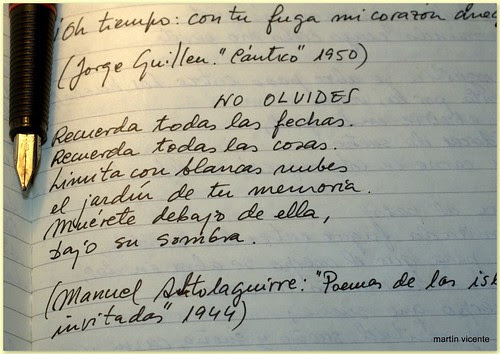 ¡Oh tiempo: con tu fuga mi corazón
(Jorge Guillen. "Cántico" 1950)
NO OLVIDES
Recuerda todas las fechas.
Recuerda todas las cosas.
Limita con blancas nubes
el jardín de tu memoria.
Muérete debajo de ella,
bajo su sombra.
(Manuel Altolaguirre: "Poemas de las
invitadas" 1944)
martin vicente